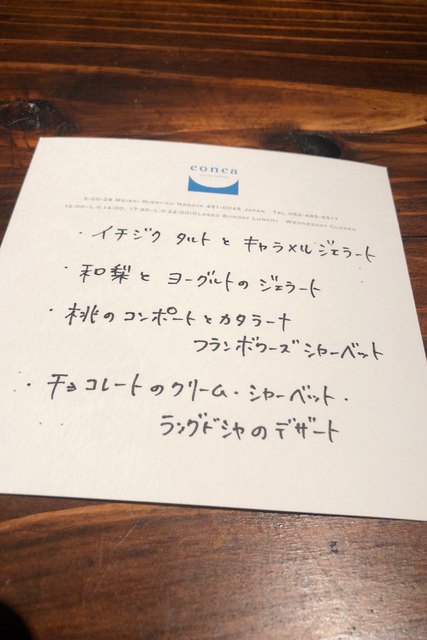 conca
2-20-28 Meieki Nishi-ku Nagoya 451-0045 Japan Tel.052-485-5617
12:00-L.O.14:00, 17:30-L.O.22:00(Closed Sunday Lunch) Wednesday Closed
・イチジク タルトと キャラメルジェラート
・和梨と ヨーグルトの ジェラート
・桃のコンポートとカタラーナ
フランボワーズシャーベット
・チョコレートのクリーム・シャーベット・
ラングドシャのデザート